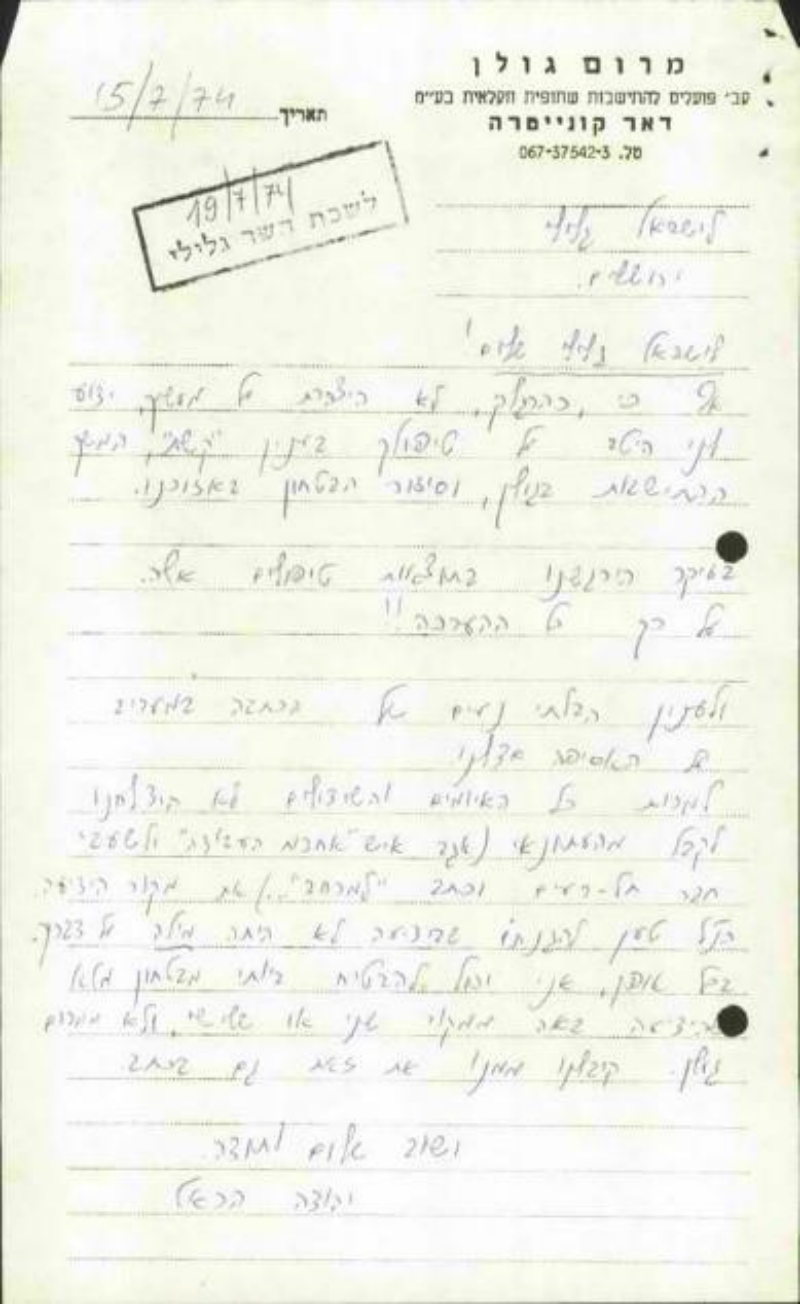 מרום גולן
קב׳ פועלים להתישבות שתופית חקלאית בע״מ
דאר קונייטרה
טל. 067-37542-3
תאריך 15/7/74
19/7/74
לשכת השר גלילי
לישראל גלילי
ירושלים.
לישראל גלילי שלום!
אף כי, כהרגלך, לא הצהרת על מעשיך, ידוע
לני היטב על טיפולך בענין "קשת", המשך
ההתישבות בגולן, וסידור הבטחון באזורנו.
בעיקר הורגשנו בתוצאות טיפולים אלה.
על כך כל ההערכה!!
ולענין הבלתי נעים של הכתבה במעריב
על האסיפה אצלנו.
למרות כל האיומים והשידולים לא הצלחנו
לקבל מהעתונאי (אגב איש "אחדות העבודה" ולשעבר
חבר תל-רעים וכתב "למרחב"..) את מקור הידיעה.
הנ"ל טען להגנתו שבידיעה לא היתה מילה על דבריך.
בכל אופן, אני יכול להבטיח ביותר מבטחון מלא
שהידיעה באה ממקור שני או שלישי, ולא ממרום
גולן. קיבלנו ממנו את זאת גם בכתב.
ושוב שלום ותודה.
יהודה הראל